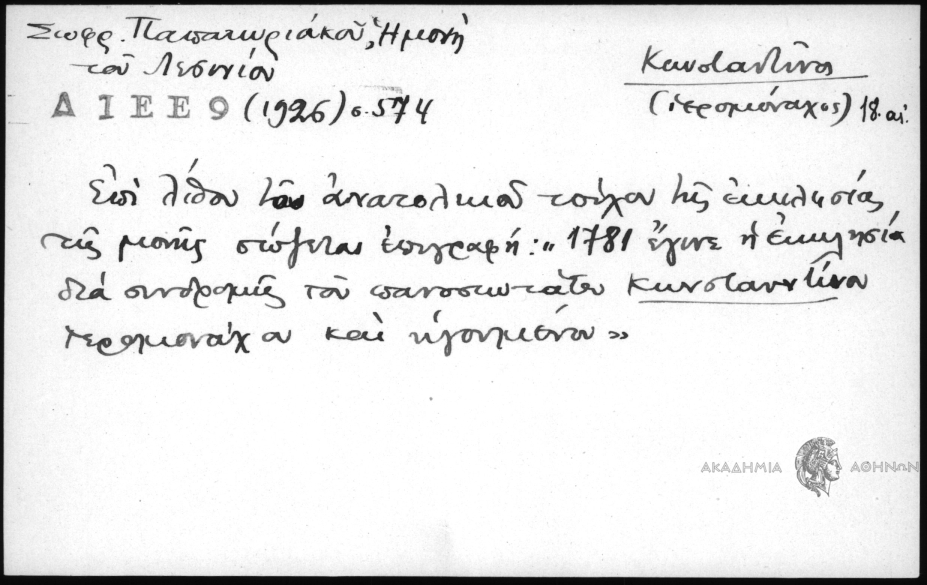 Σωφρ. Παπακυριάκου, Ἡ μονὴ
τοῦ Λεσινίου
Δ Ι Ε Ε 9 (1926) σ. 574
Κωνσταντῖνος
(ἱερομόναχος) 18. αἰ.
Ἐπὶ λίθου τοῦ ἀνατολικοῦ τοίχου τῆς ἐκκλησίας
τῆς μονῆς σώζεται ἐπιγραφή: „1781 ἔγινε ἡ ἐκκλησία
διά συνδρομῆς τοῦ πανοσιωτάτου Κωνσταντίνου
ἱερομονάχου καὶ ἡγουμένου»
ΑΚΑΔΗΜΙΑ ΑΘΗΝΩΝ